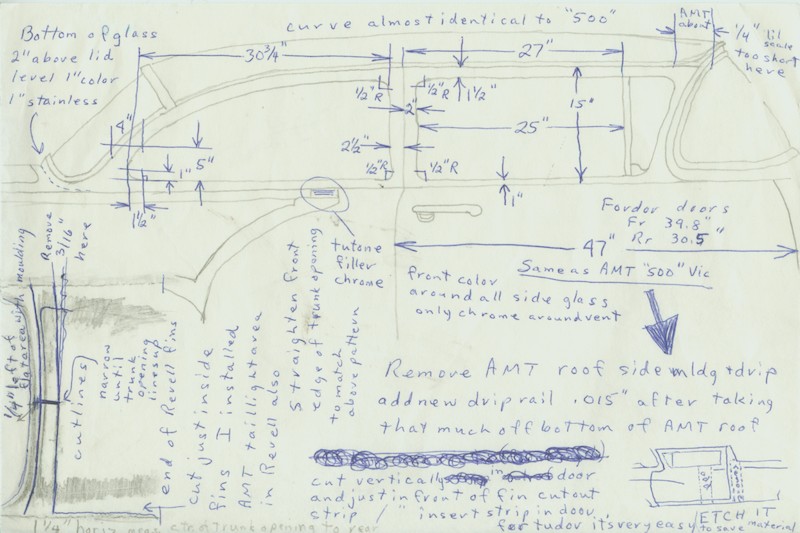 curve almost identical to "500"
AMT
about
1/4" lil
scale
too short
here
Bottom of glass
2" above lid
level 1" color
1" stainless
30 3/4"
27"
1/2" R
1/2" R
2"
1 1/2"
15"
4"
5"
1"
1 1/2"
2 1/2"
25"
1/2" R
1/2" R
1"
Fordor doors
Fr 39.8"
Rr 30.5"
47"
Same as AMT "500" Vic
tutone
filler
chrome
front color
around all side glass
only chrome around vent
Remove AMT roof side mldg + drip
add new drip rail .015" after taking
that much off bottom of AMT roof
cut vertically in door
and just in front of fin cutout
strip 1" insert strip in door
for tudor its very easy
ETCH IT
to save material
1/4" left of
flat area with moulding
Remove
3/16"
here
cut lines
narrow
until
trunk
opening
lines up
end of Revell fins
cut just inside
fins I installed
AMT taillight area
in Revell also
Straighten front
edge of trunk opening
to match
above pattern
1 1/4" horiz meas ctr of trunk opening to rear